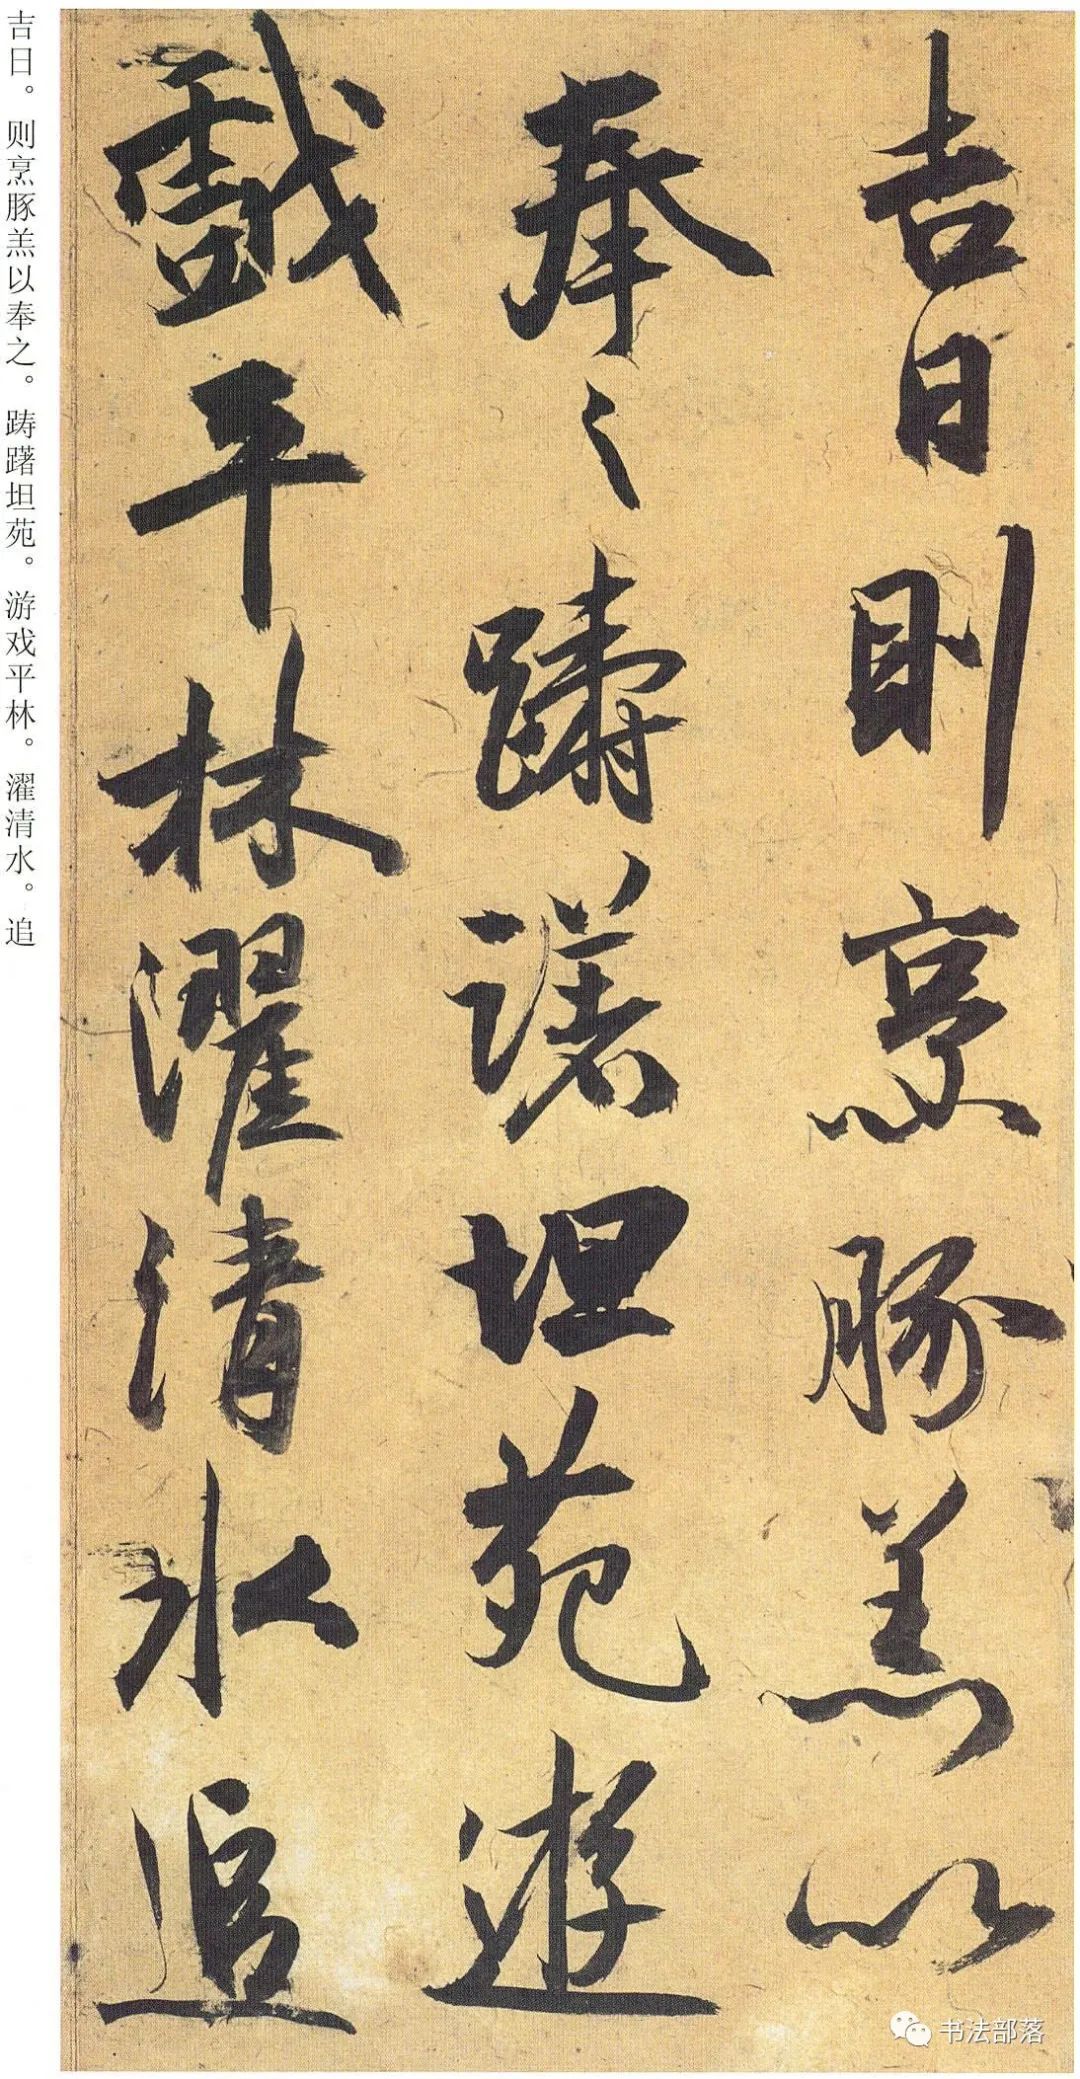 吉日則烹豚羔以
奉之躊躇坦苑遊
戲平林濯清水追
吉日。则烹豚羔以奉之。踌躇坦苑。游戏平林。濯清水。追
书法部落